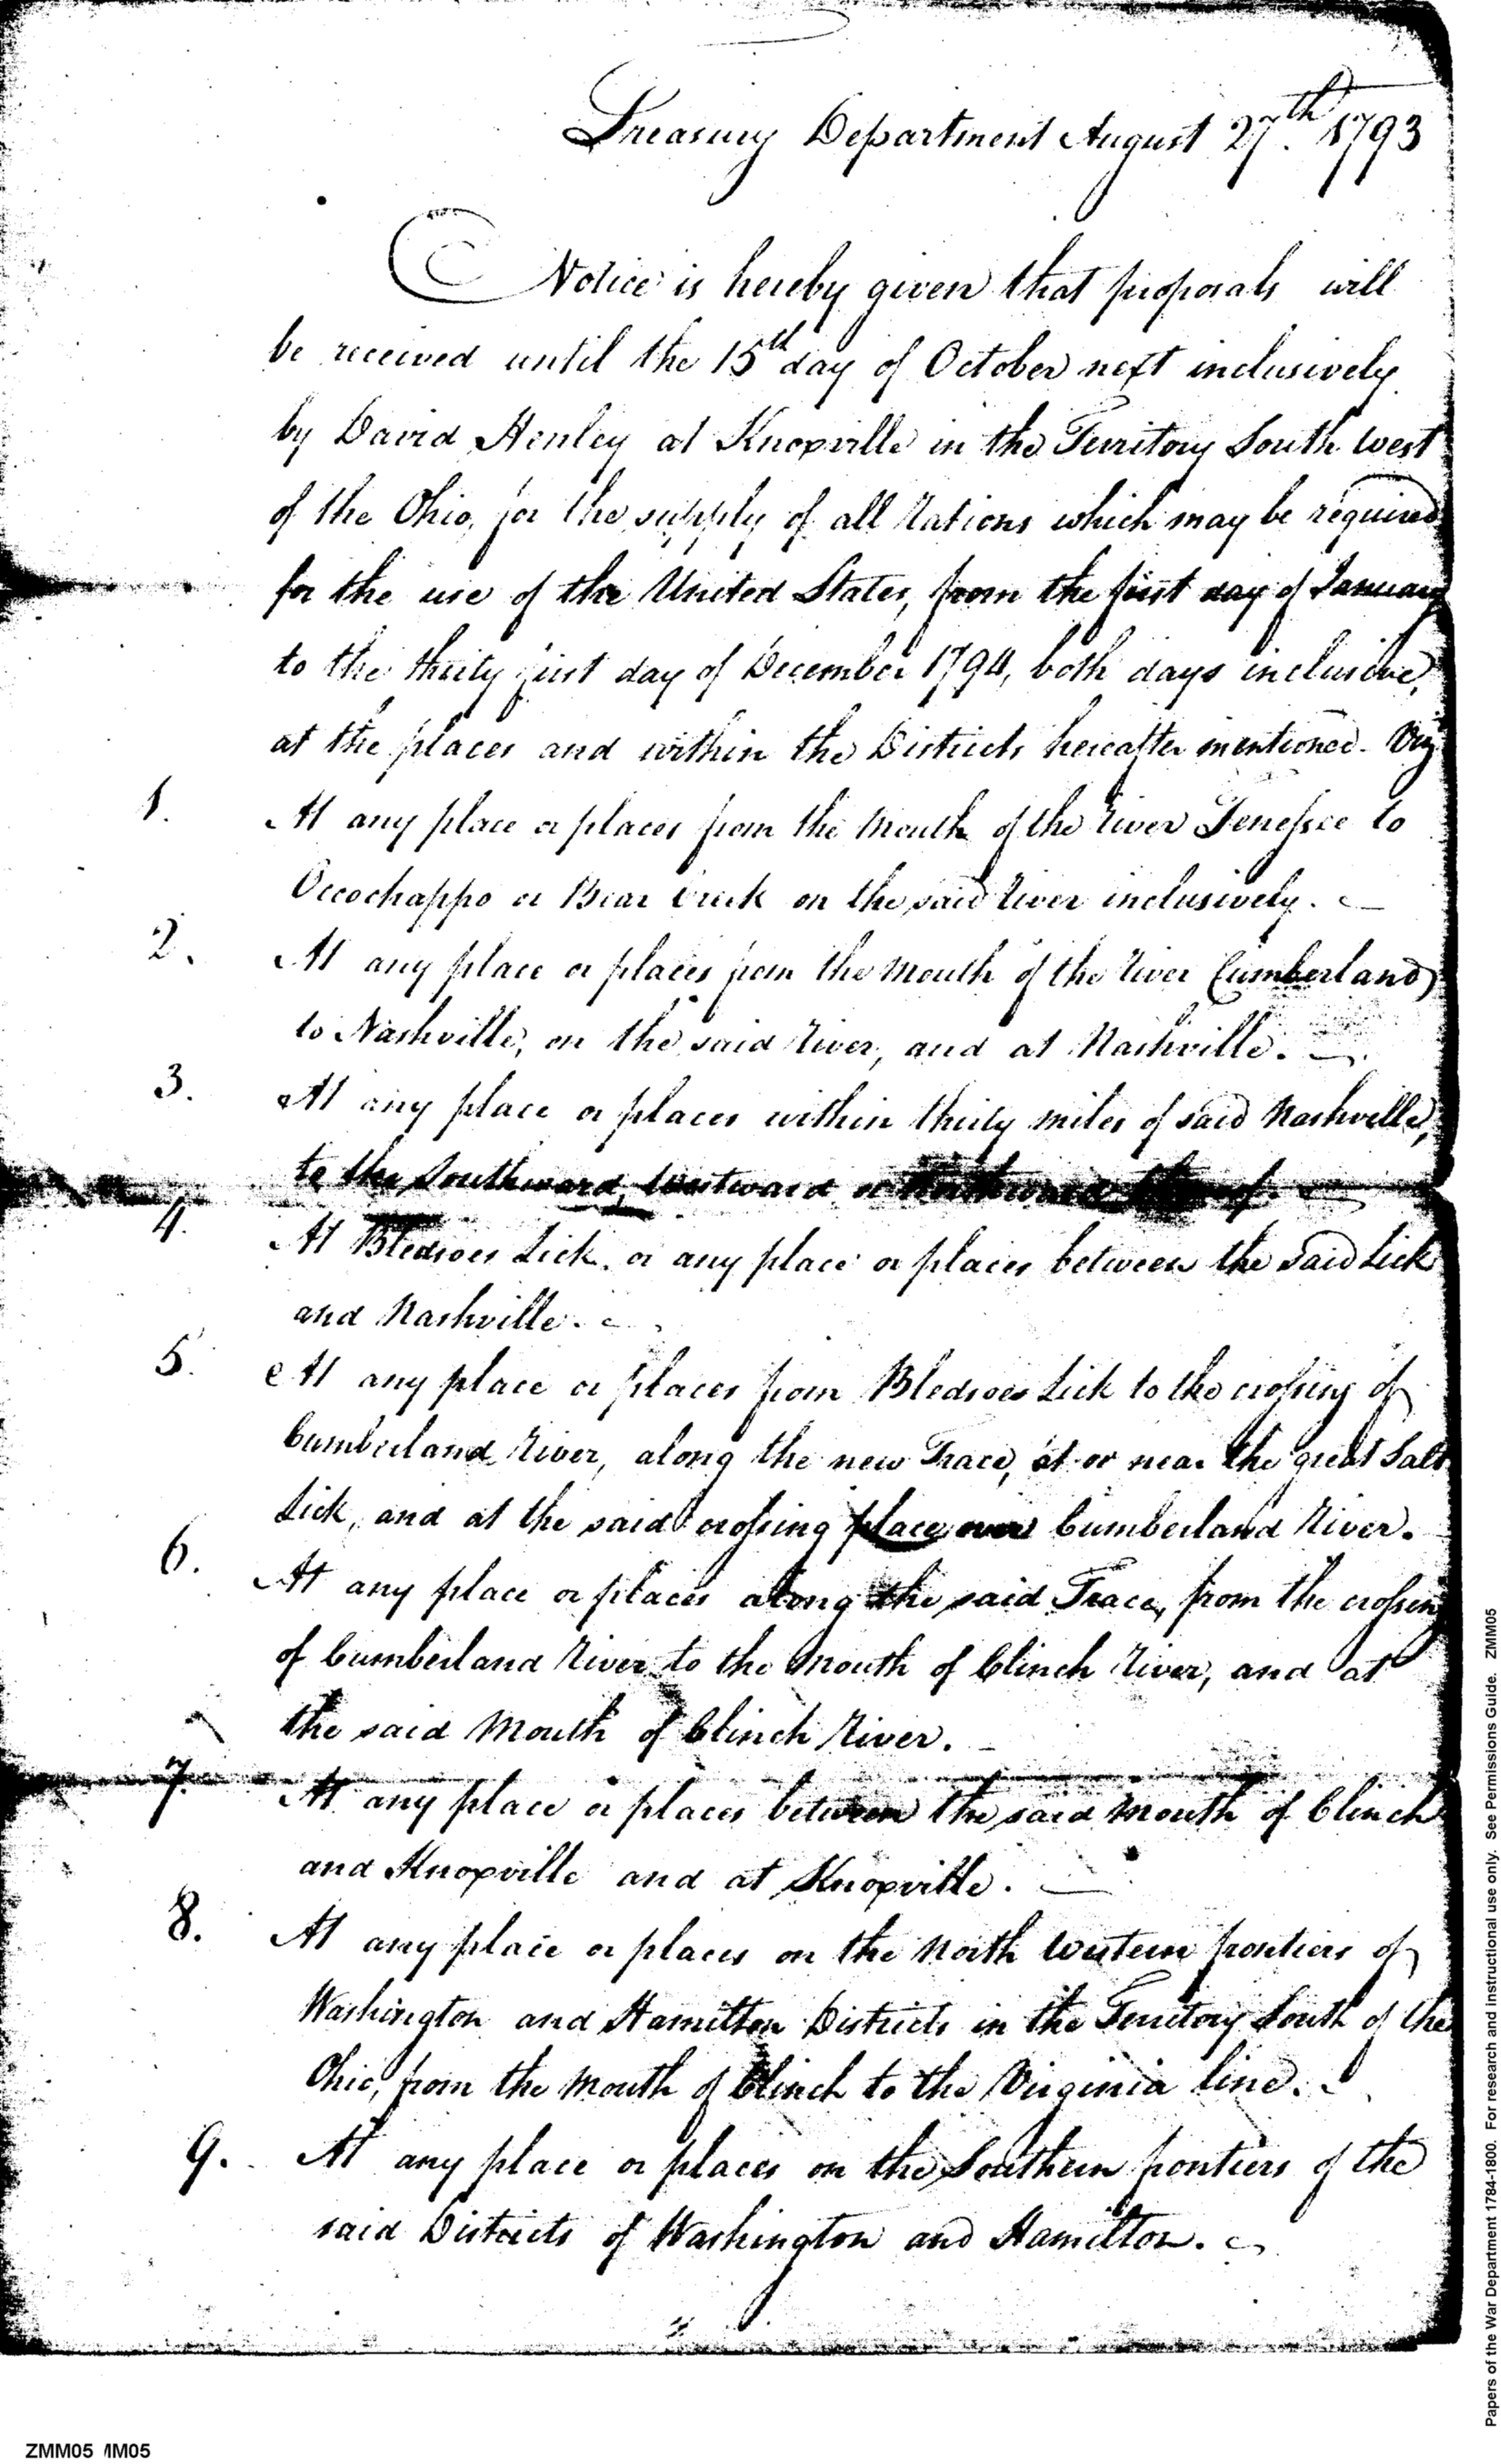 Treasury Department August 27th. 1793
Notice is hereby given that proposals will
be received until the 15th day of October next inclusively
by David Henley at Knoxville in the Territory South West
of the Ohio, for the supply of all Rations which may be required
for the use of the United States, from the first day of January
to the thirty first day of December 1794, both days inclusive,
at the places and within the Districts hereafter mentioned. Viz
1. At any place or places from the Mouth of the River Tenessee to
Occochappo or Bear Creek on the said River inclusively.
2. At any place or places from the Mouth of the River Cumberland
to Nashville, on the said River, and at Nashville.
3. At any place or places within thirty miles of said Nashville,
to the Southward, Westward or Northward thereof.
4. At Bledsoes Lick, or any place or places between the said Lick
and Nashville.
5. At any place or places from Bledsoes Lick to the crossing of
Cumberland River, along the new Trace, at or near the great Salt
Lick, and at the said crossing place over Cumberland River.
6. At any place or places along the said Trace, from the crossing
of Cumberland River to the Mouth of Clinch River, and at
the said Mouth of Clinch River.
7. At any place or places between the said Mouth of Clinch
and Knoxville and at Knoxville.
8. At any place or places on the North Western frontiers of
Washington and Hamilton Districts in the Territory South of the
Ohio, from the Mouth of Clinch to the Virginia line.
9. At any place or places on the Southern frontiers of the
said Districts of Washington and Hamilton.
Papers of the War Department 1784-1800. For research and instructional use only. See Permissions Guide. ZMM05
ZMM05 MM05